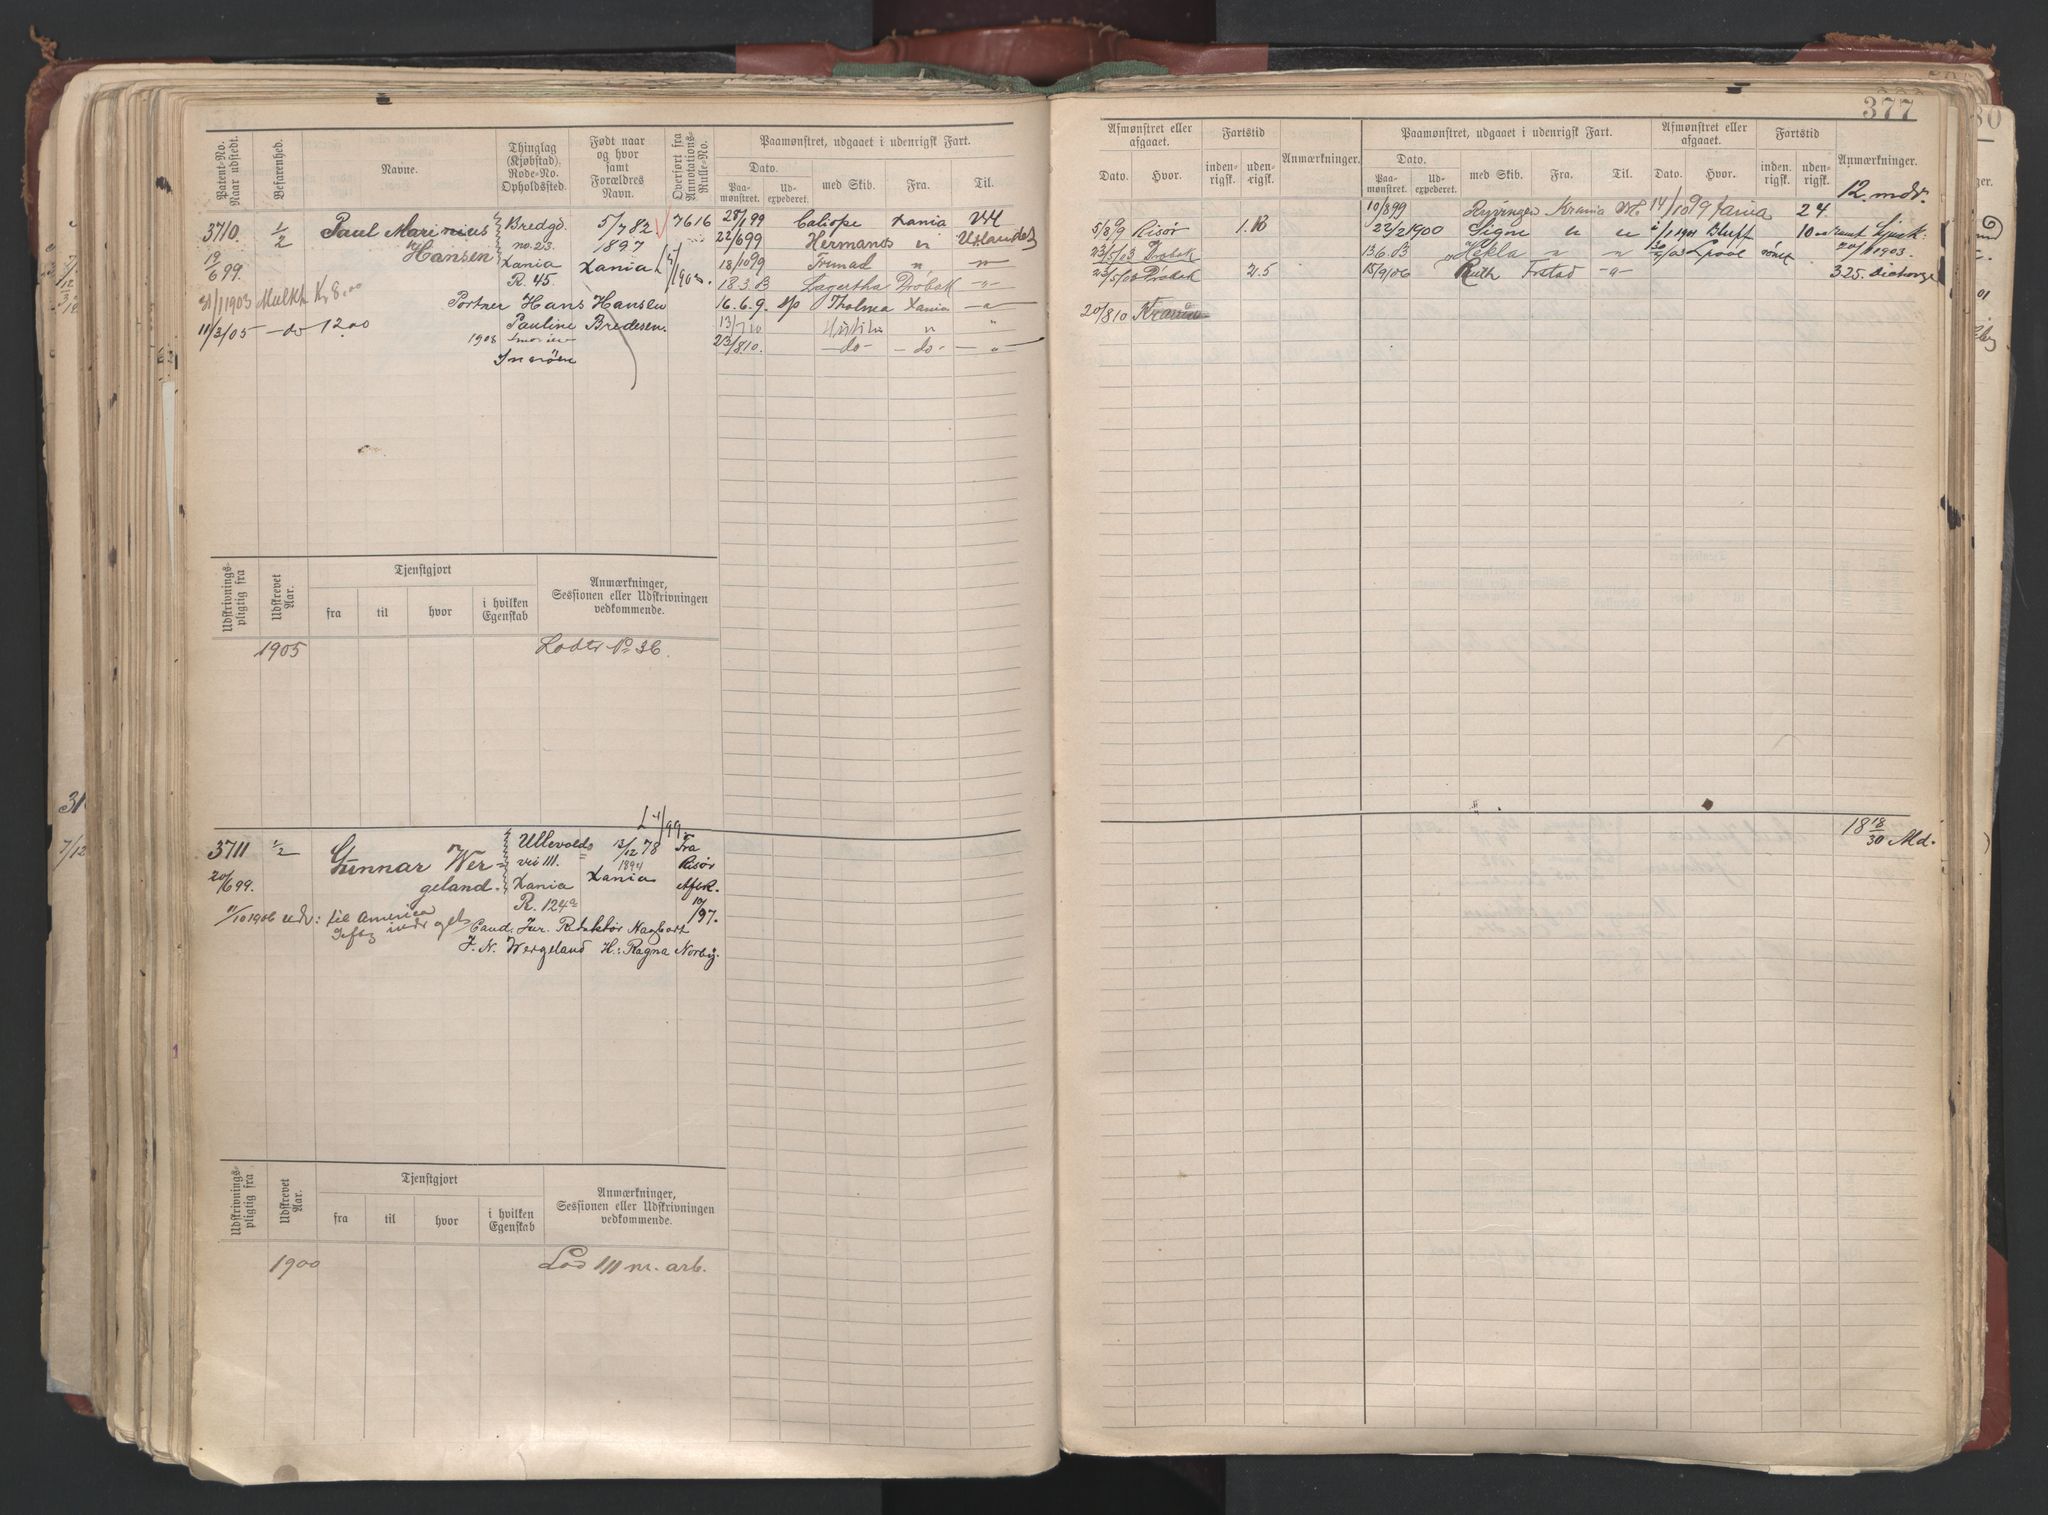 377
Patent-No. Naar udstedt.
Befarenhed.
Navne.
Thinglag (Kjøbstad). Rode-No. Opholdssted.
Født naar og hvor samt Forældres Navn.
Overført fra Annotations-Rulle-No.
Paamønstret, udgaaet i udenrigsk Fart.
Dato.
Paamønstret.
Udexpederet.
med Skib.
Fra.
Til.
Afmønstret eller afgaaet.
Dato.
Hvor.
Fartstid
indenrigsk.
udenrigsk.
Anmærkninger.
Paamønstret, udgaaet i udenrigsk Fart.
Dato.
Paamønstret.
Udexpederet.
med Skib.
Fra.
Til.
Afmønstret eller afgaaet.
Dato.
Hvor.
Fartstid
indenrigsk.
udenrigsk.
Anmærkninger.
12 mdr.
3710. 1/2 Paul Marinius Bredgd. 5/7 82 7616 28/1 99 Caliope Xania
19/6 99. Hansen no. 23. 1897 22/6 99 Hermanos " Uslandet
Xania Xania 18/10 99 " "
R. 45. 18.3.03 Lagertha Drøbak -"-
31/1 1903 Mulkt Kr 8.00
Portner Hans Hansen 16.6.9. Thelma Xania -"-
11/3/05 -do- 12.00 Pauline Bredesen. 13/7 10 " "
1908 23/8 10. -do- -do- "
5/8 99 Risør 1.13 10/8 99 Ryvingen Krania 14/10 99 Xania 24
22/2 1900 Signe " " 1/1 1901 Bluff 10
23/5/03 Drøbak 13.6.03 Hekla " " Lpool rømt 20/11 1903.
23/5/06 Drøbak 21.5 15/9/06 Ruth Frstad -"- 325.
20/8 10 Krania
Udskrivningspligtig fra
Udskrevet Aar.
Tjenstgjort
fra
til
hvor
i hvilken Egenskab
Anmærkninger, Sessionen eller Udskrivningen vedkommende.
1905 Lodtr No 36.
3711 1/2 Gunnar Wer- Ullevolds 13/12 78 Fra 18 18/30 Md.
20/6 99. geland. vei 111. 1894 Risør
Xania Xania Afsk.
R. 124a 10/97.
11/10 1906 udv: til America
Cand. Jur. Redaktør Hagbart
J. N. Wergeland H: Ragna Norby.
Udskrivningspligtig fra
Udskrevet Aar.
Tjenstgjort
fra
til
hvor
i hvilken Egenskab
Anmærkninger, Sessionen eller Udskrivningen vedkommende.
1900 Lod 111 m. arb.